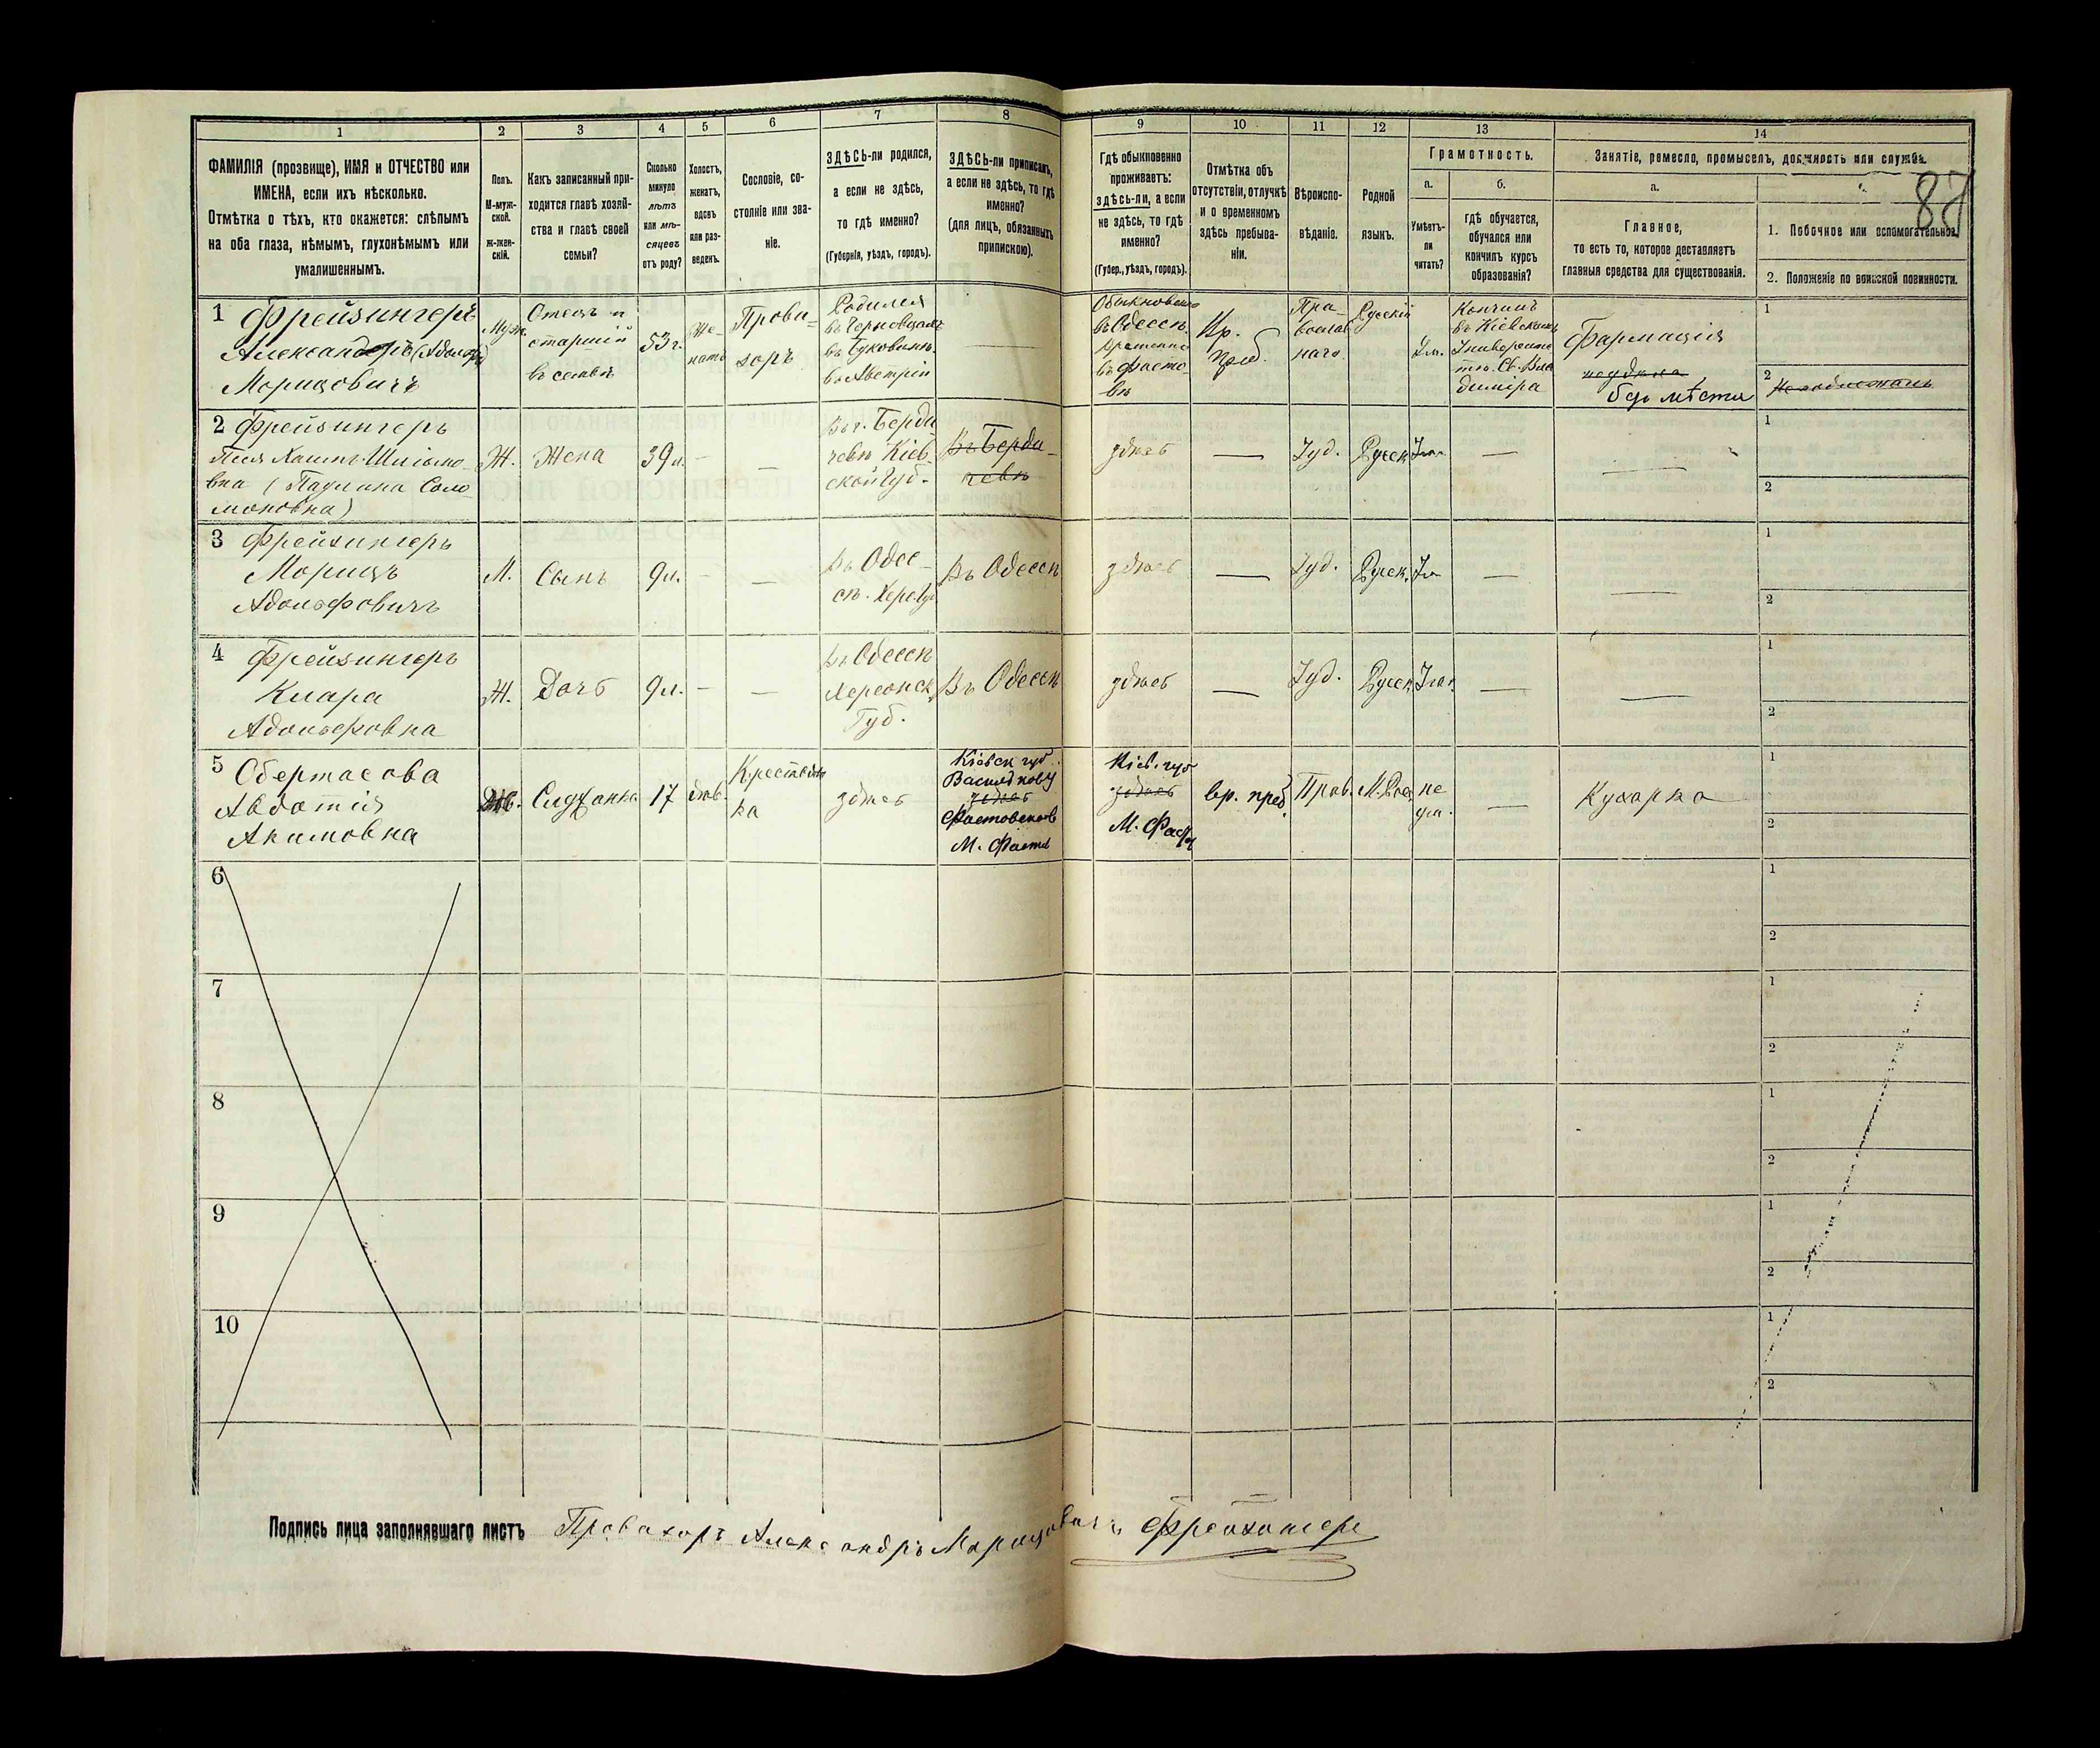 1 2 3 4 5 6 7 8 9 10 11 12 13 14
87
ФАМИЛІЯ (прозвище), ИМЯ и ОТЧЕСТВО или
ИМЕНА, если ихъ нѣсколько.
Отмѣтка о тѣхъ, кто окажется: слѣпымъ
на оба глаза, нѣмымъ, глухонѣмымъ или
умалишеннымъ.
Полъ.
М-муж-
ской.
Ж-жен-
скій.
Какъ записанный при-
ходится главѣ хозяй-
ства и главѣ своей
семьи?
Сколько
минуло
лѣтъ
или мѣ-
сяцевъ
отъ роду?
Холостъ,
женатъ,
вдовъ
или раз-
веденъ.
Сословіе, со-
стояніе или зва-
ніе.
ЗДѢСЬ-ли родился,
а если не здѣсь,
то гдѣ именно?
(Губернія, уѣздъ, городъ).
ЗДѢСЬ-ли приписанъ,
а если не здѣсь, то гдѣ
именно?
(для лицъ, обязанныхъ
припискою).
Гдѣ обыкновенно
проживаетъ:
здѣсь-ли, а если
не здѣсь, то гдѣ
именно?
(Губер., уѣздъ, городъ).
Отмѣтка объ
отсутствіи, отлучкѣ
и о временномъ
здѣсь пребыва-
ніи.
Вѣроиспо-
вѣданіе.
Родной
языкъ.
Грамотность.
а.
Умѣетъ-
ли
читать?
б.
гдѣ обучается,
обучался или
кончилъ курсъ
образованія?
Занятіе, ремесло, промыселъ, должность или служба.
а.
Главное,
то есть то, которое доставляетъ
главныя средства для существованія.
1. Побочное или вспомогательное.
2. Положеніе по воинской повинности.
1 Фрейзингеръ
Александръ (Адольфъ)
Морицовичъ
Муж.
Отецъ и
старшій
въ семьѣ
53 г.
Же-
натъ
Прови-
зоръ
Родился
въ Черновцахъ
въ Буковинѣ
въ Австріи
Обыкновенно
въ Одессѣ.
Временно
въ Фасто-
вѣ
Вр.
Преб.
Пра-
вослав
наго.
Русскій
Ум.
Кончилъ
въ Кіевскомъ
Университе
тѣ Св. Вла
диміра
Фармація
безъ мѣста
1
2
2 Фрейзингеръ
Шлiомо-
вна (Паулина Соло-
моновна)
Ж.
Жена
39 л.
Въ г. Берди
чевѣ Кіев-
ской Губ.
Въ Берди-
чевѣ
здѣсь
Іуд.
Русск.
1
2
3 Фрейзингеръ
Морицъ
Адольфовичъ
М.
Сынъ
9 л.
Въ Одес-
сѣ. Херс. Губ
Въ Одессѣ
здѣсь
Іуд.
Русск.
1
2
4 Фрейзингеръ
Клара
Адольфовна
Ж.
Дочь
9 л.
Въ Одессѣ
Херсонск.
Губ.
Въ Одессѣ
здѣсь
Іуд.
Русск.
1
2
5 Обертасова
Авдотія
Акимовна
17
дѣв.
Крестьян
ка
здѣсь
Кіевск губ.
здѣсь
М. Фастов
Кіев. губ
здѣсь
М. Фаст
вр. преб.
Прав.
не
ум.
Кухарка
1
2
6
1
2
7
1
2
8
1
2
9
1
2
10
1
2
Подпись лица заполнявшаго листъ Провизоръ Александръ Морицовичъ Фрейзингеръ